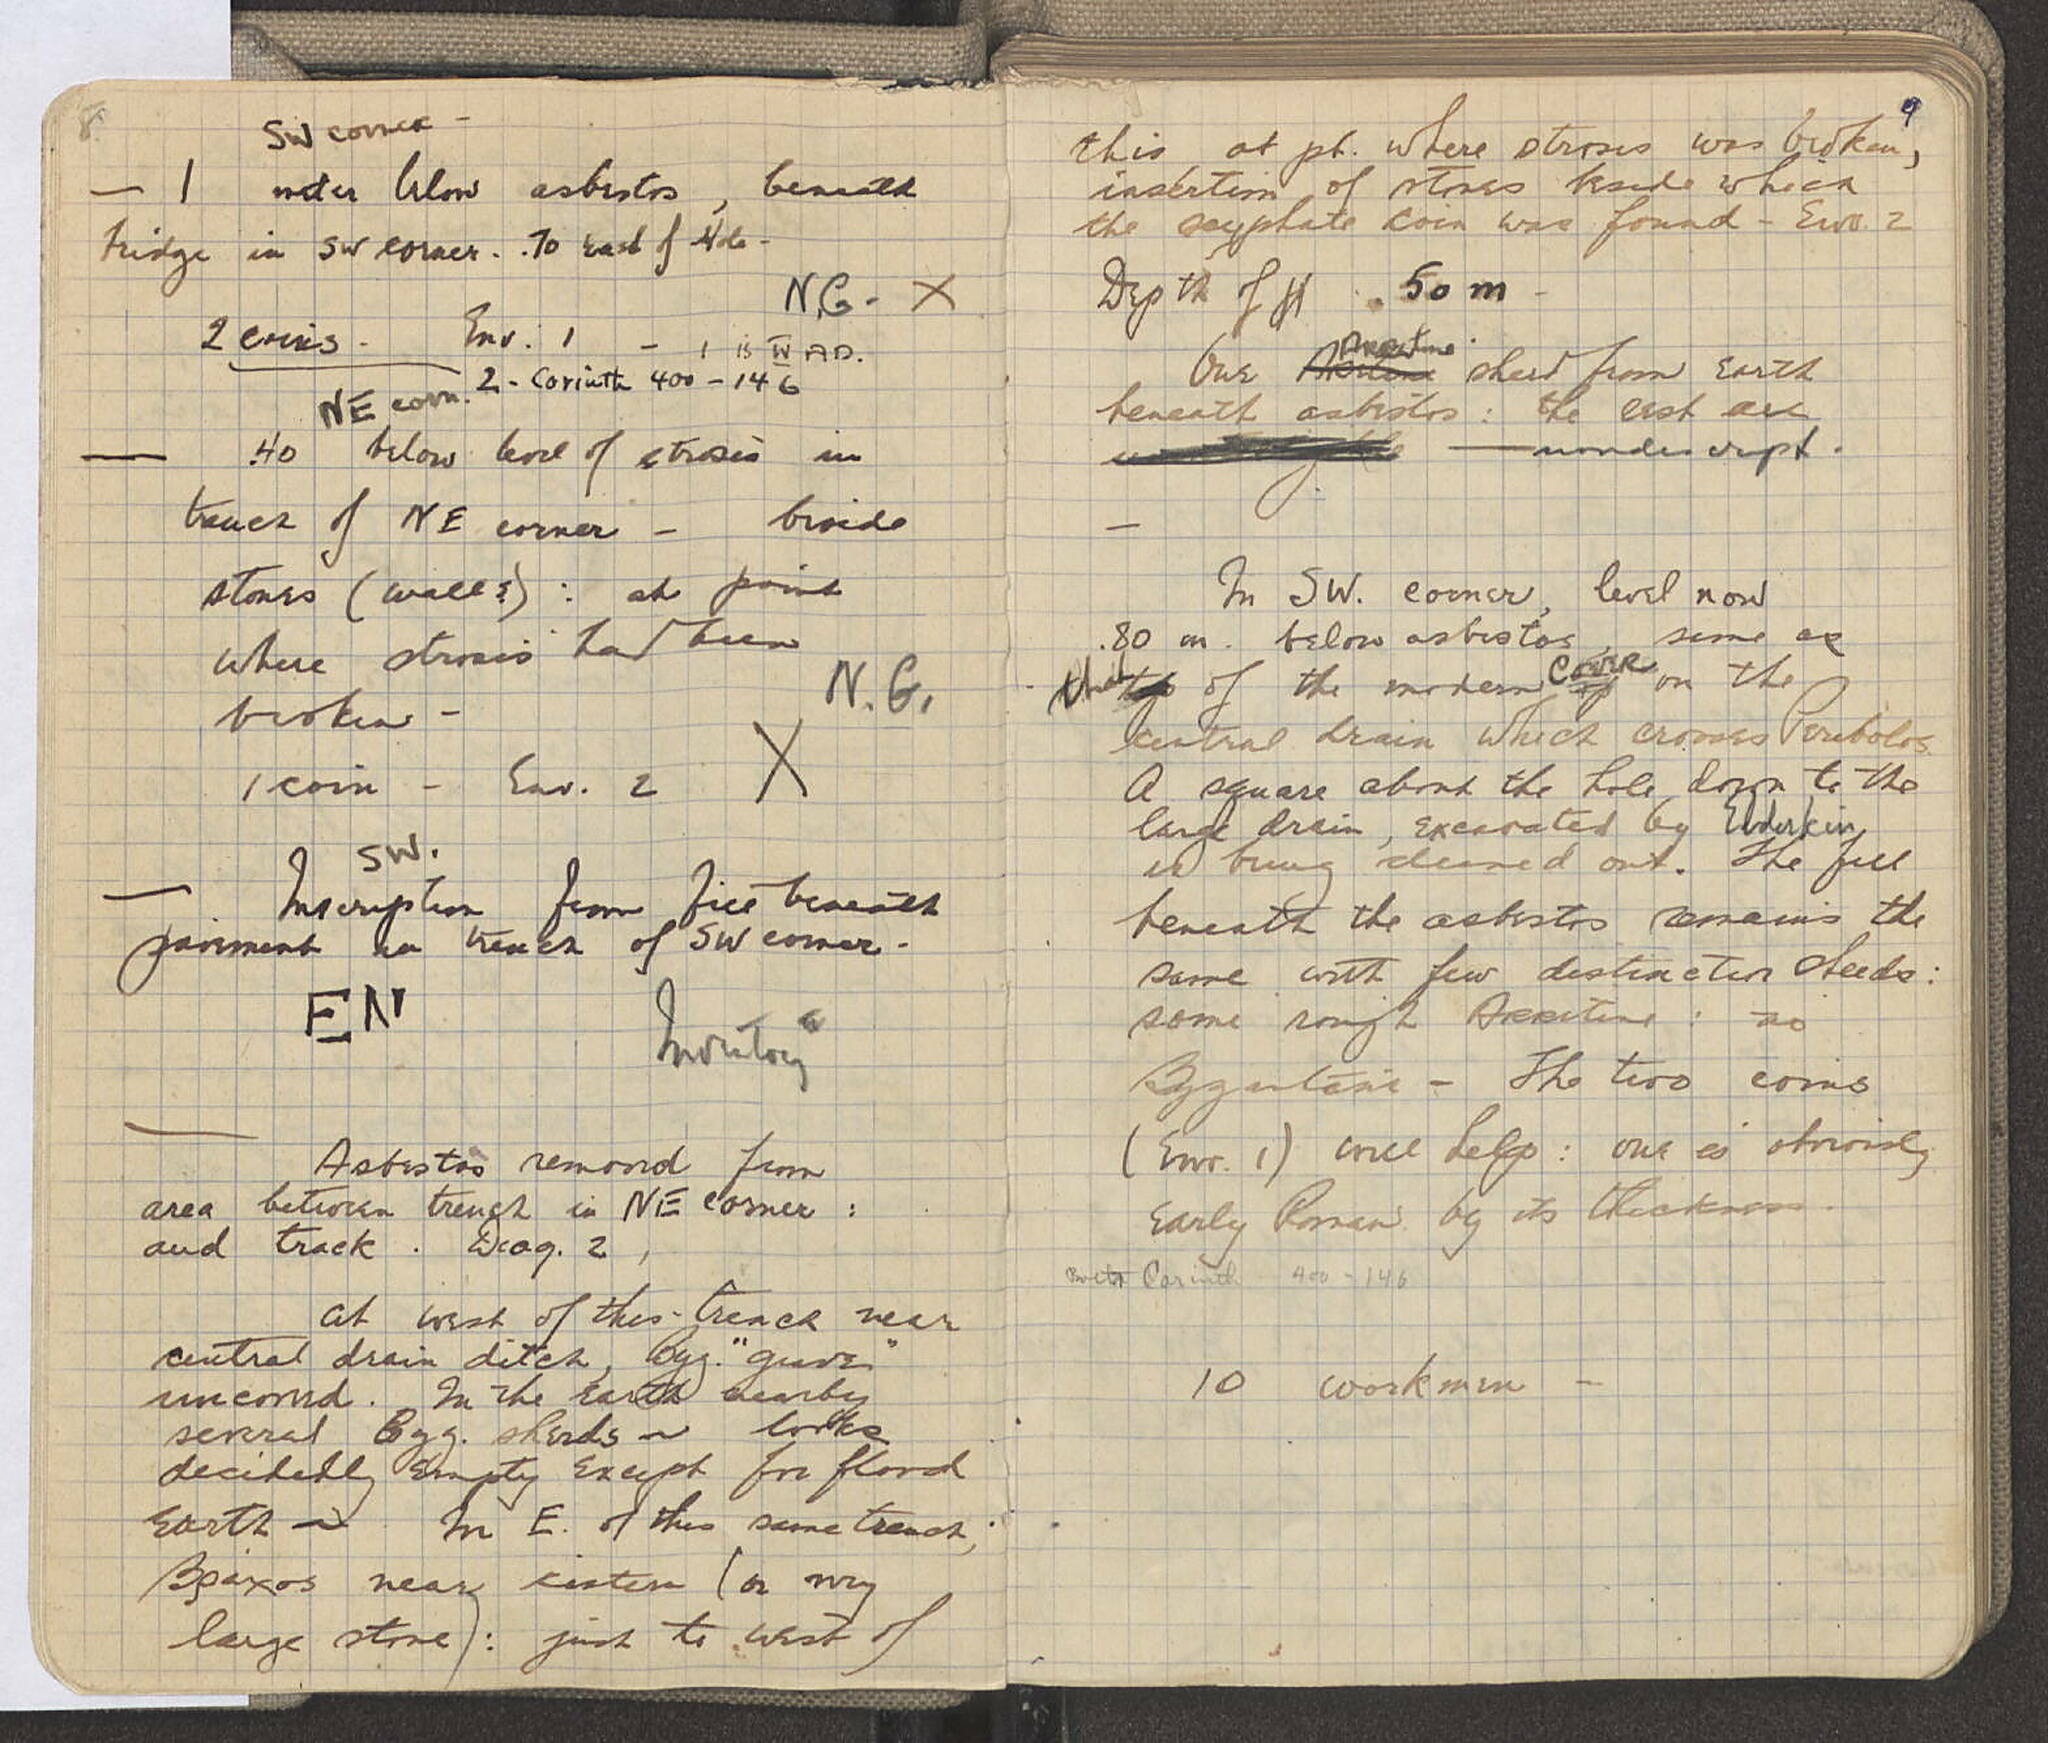 8.
SW corner -
— 1 meter below asbestos, beneath
bridge in SW corner. .70 East of Hole -
N.G. - X
2 coins. Env. 1 - 1 is IV AD.
2 - Corinth 400 - 146
NE corn.
— .40 below level of strosis in
trench of NE corner - beside
stones (wall?) : at point
where strosis had been
broken -
N.G.
1 coin - Env. 2 X
SW.
— Inscription from fill beneath
pavement in trench of SW corner -
EN
Inventory
— Asbestos removed from
area between trench in NE corner :
and track . Diag. 2,
At west of this trench near
central drain ditch, Byz. "grave"
uncovered. In the earth nearby
several Byz. sherds - looks
decidedly empty except for flood
Earth - In E. of this same trench,
Βράχος near cistern (or very
large stone) : just to west of
9
this at pt. where strosis was broken,
insertion of stones beside which
the scyphate coin was found - Env. 2
Depth of .50 m -
One Arretine sherd from Earth
beneath asbestos : the rest are
— nondescript.
—
In SW. corner, level now
.80 m. below asbestos, same as
that of the modern cover on the
central drain which crosses Peribolos
A square about the hole down to the
large drain, excavated by Elderkin
is being cleaned out. The fill
beneath the asbestos remains the
same with few distinctive sheeds :
some rough Arretine : no
Byzantine - The two coins
(Env. 1) will help : one is obviously
Early Roman by its thickness.
Corinth 400 - 146
10 workmen -